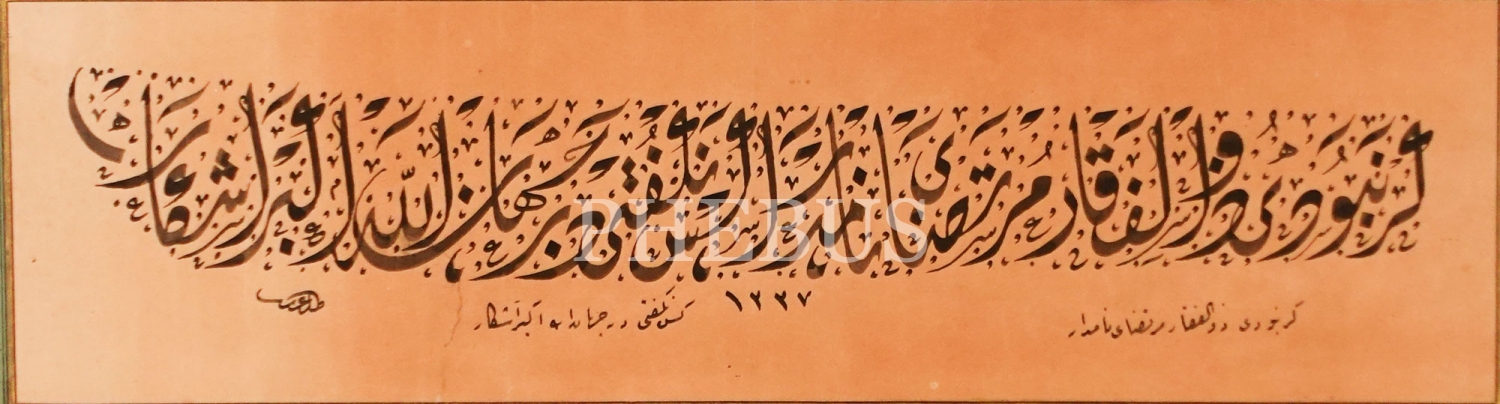 گر نبودی ذو الفقار مرتضای نامدار کس نگفتی در جهان الله اکبر اشکار
١٣٣٧
گر نبودی ذو الفقار مرتضای نامدار
کس نگفتی در جهان الله اکبر اشکار
PHEBUS